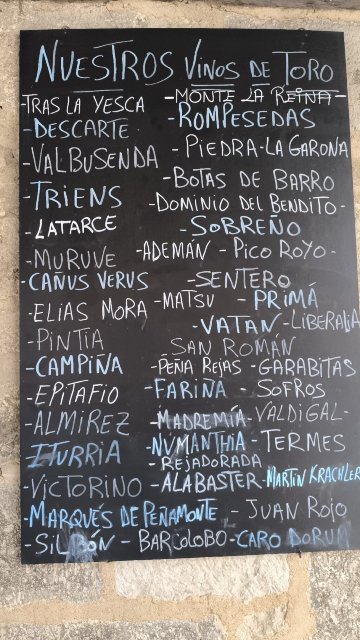 NUESTROS VINOS DE TORO
-TRAS LA YESCA -MONTE LA REINA-
-DESCARTE -ROMPESEDAS
-VALBUSENDA -PIEDRA-LA GARONA
-TRIENS -BOTAS DE BARRO
-LATARCE -DOMINIO DEL BENDITO-
-MURUVE -SOBREÑO
-ADEMÁN -PICO ROYO-
-CAÑUS VERUS -SENTERO
-ELIAS MORA -MATSU -PRIMÁ
-PINTIA -VATAN -LIBERALIA
-CAMPIÑA SAN ROMÁN
-EPITAFIO -PEÑA REJAS -GARABITAS
-ALMIREZ -FARIÑA -SOFROS
ITURRIA -MADREMÍA -VALDIGAL-
-VICTORINO -NVMANTHIA -TERMES
-REJADORADA
-ALABASTER -MARTIN KRACHLER
-MARQUÉS DE PEÑAMONTE -JUAN ROJO
-SILBÓN -BARCOLOBO -CARO DORUM